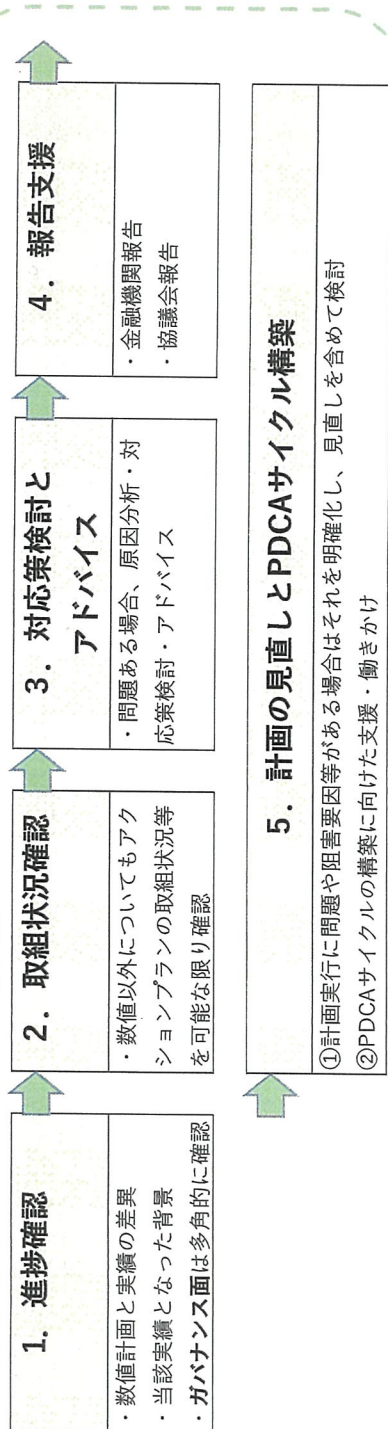 1. 進捗確認
・数値計画と実績の差異
・当該実績となった背景
・ガバナンス面は多角的に確認
2. 取組状況確認
・数値以外についてもアク
ションプランの取組状況等
を可能な限り確認
3. 対応策検討と
アドバイス
・問題ある場合、原因分析・対
応策検討・アドバイス
4. 報告支援
・金融機関報告
・協議会報告
5. 計画の見直しとPDCAサイクル構築
①計画実行に問題や阻害要因等がある場合はそれを明確化し、見直しを含めて検討
②PDCAサイクルの構築に向けた支援・働きかけ